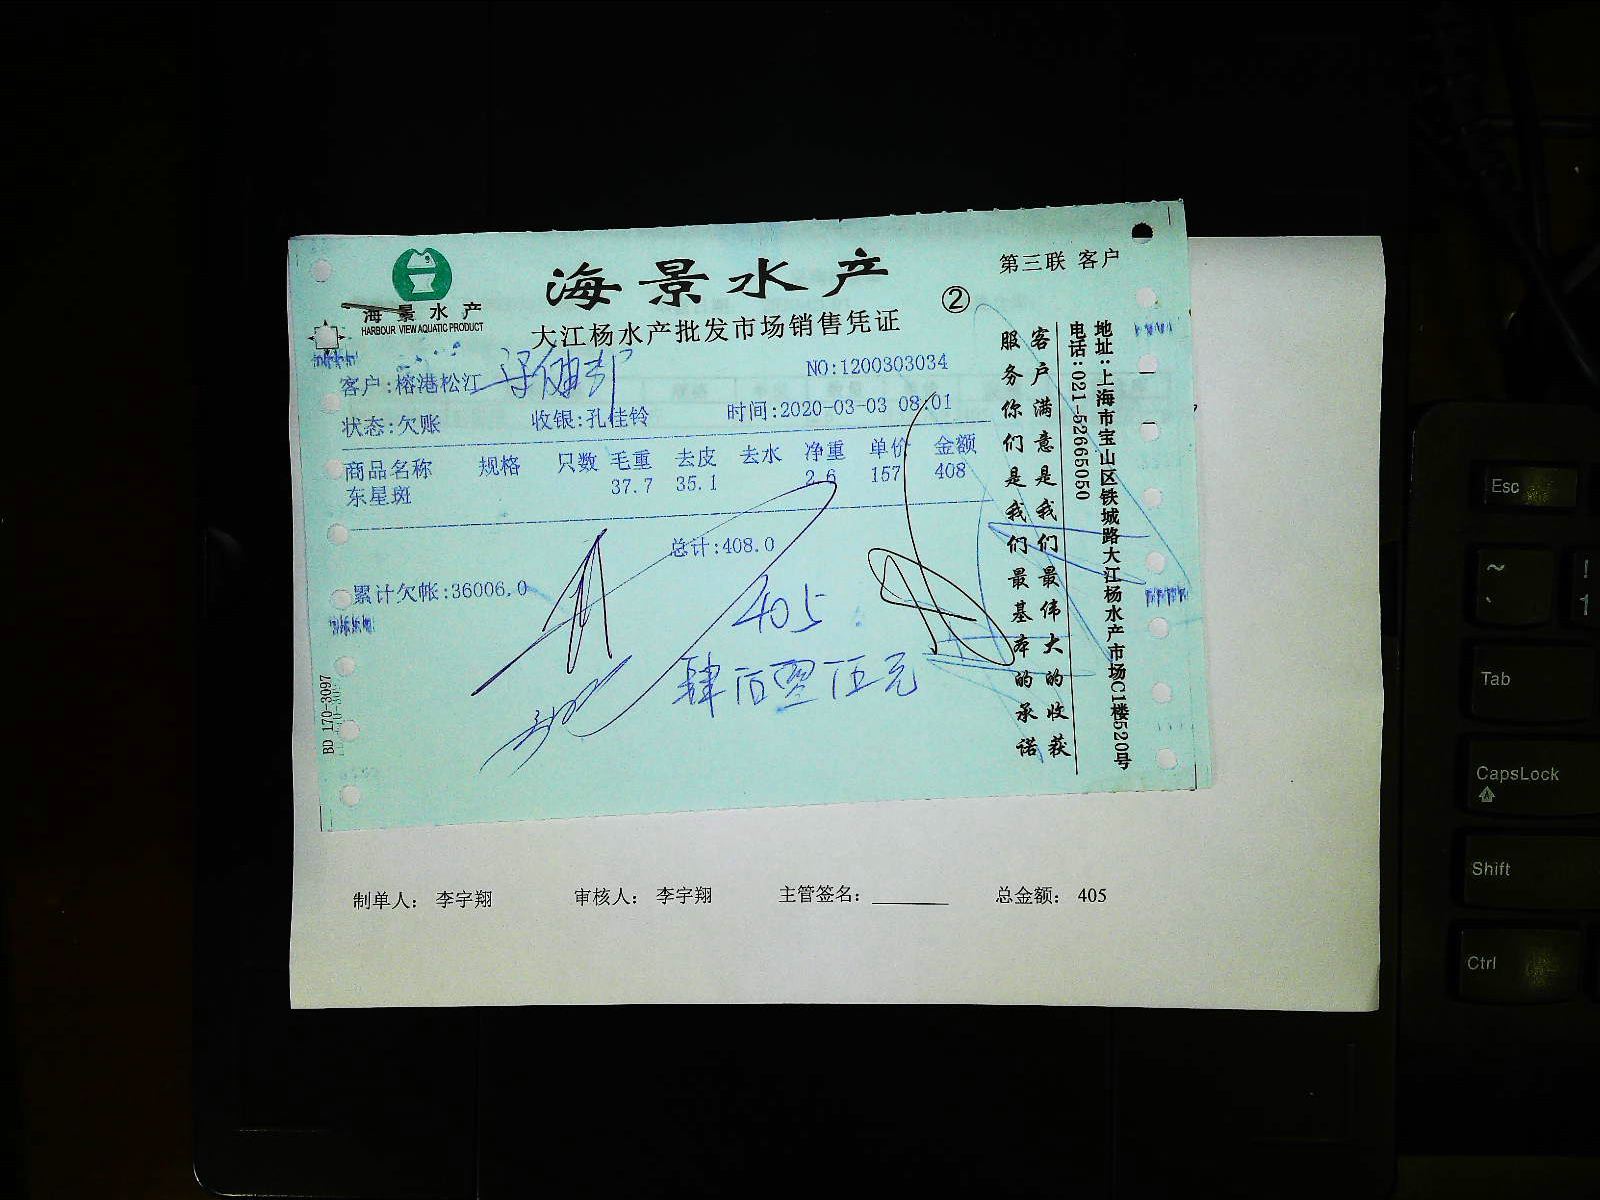 海景水产
HARBOUR VIEW AQUATIC PRODUCT
海景水产
大江杨水产批发市场销售凭证
②
第三联 客户
客户:榕港松江
NO:1200303034
状态:欠账 收银:孔佳铃 时间:2020-03-03 08:01
商品名称 规格 只数 毛重 去皮 去水 净重 单价 金额
东星斑 37.7 35.1 2.6 157 408
总计:408.0
累计欠帐:36006.0
405
肆佰零伍元
客户满意是我们最伟大的收获
服务你们是我们最基本的承诺
地址:上海市宝山区铁城路大江杨水产市场C1楼520号
电话:021-52665050
BD 170-3097
制单人: 李宇翔 审核人: 李宇翔 主管签名: 总金额: 405
Esc
~
!
1
Tab
CapsLock
Shift
Ctrl